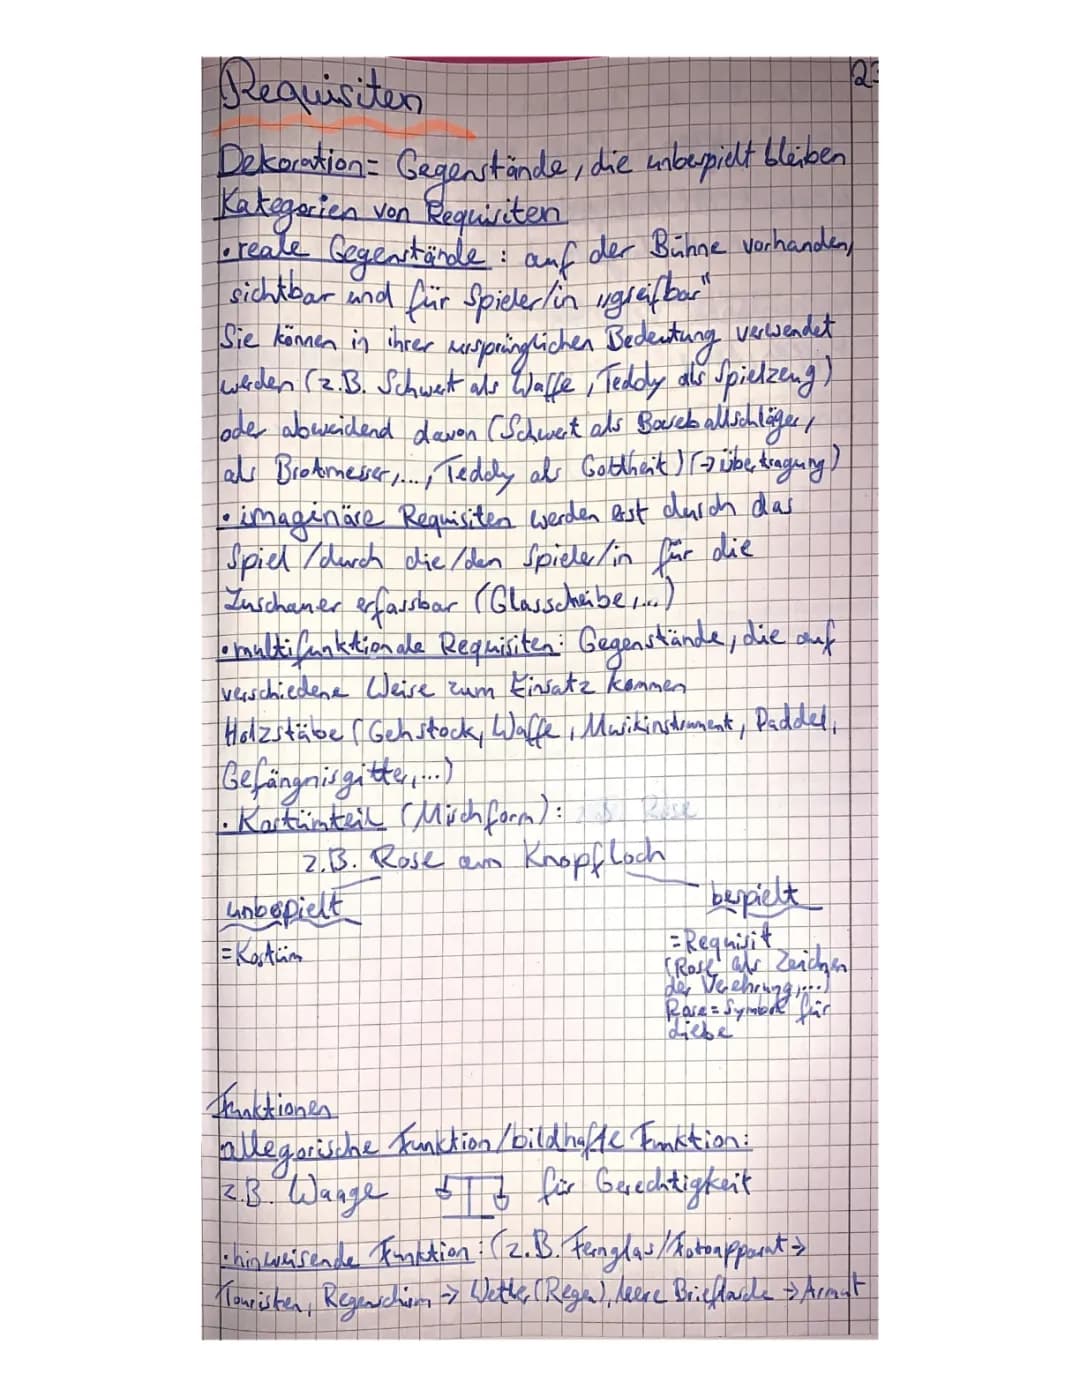 Requisiten
Dekoration = Gegenstände, die unbespielt bleiben
Kategorien von Requisiten
• reale Gegenstände : auf der Bühne vorhanden,
sichtbar und für Spieler/in „greifbar"
Sie können in ihrer ursprünglichen Bedeutung verwendet
werden (z.B. Schwert als Waffe, Teddy als Spielzeug)
oder abweidend davon (Schwert als Baseballschläger,
als Brotmesser,..., Teddy als Gottheit) (→ Übertragung)
• imaginäre Requisiten werden erst durch das
Spiel /durch die/den Spieler/in für die
Zuschauer erfassbar (Glasscheibe,...)
• multifunktionale Requisiten: Gegenstände, die auf
verschiedene Weise zum Einsatz kommen
Holzstäbe (Gehstock, Waffe, Musikinstrument, Paddel,
Gefängnisgitter,...)
• Kostümteil (Mischform):
z.B. Rose am Knopfloch
unbespielt bespielt
= Kostüm = Requisit
(Rose als Zeichen
der Verehrung,...)
Rose = Symbol für
Liebe
Funktionen
allegorische Funktion/bildhafte Funktion:
z.B. Waage für Gerechtigkeit
• hinweisende Funktion: (z.B. Fernglas/Fotoapparat →
Touristen, Regenschirm → Wetter (Regen), leere Brieftasche → Armut